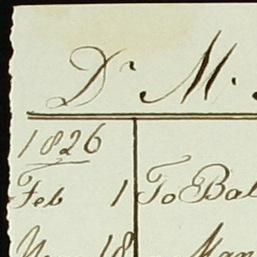 Dr M.
1826
Feb 1 To Bal
18